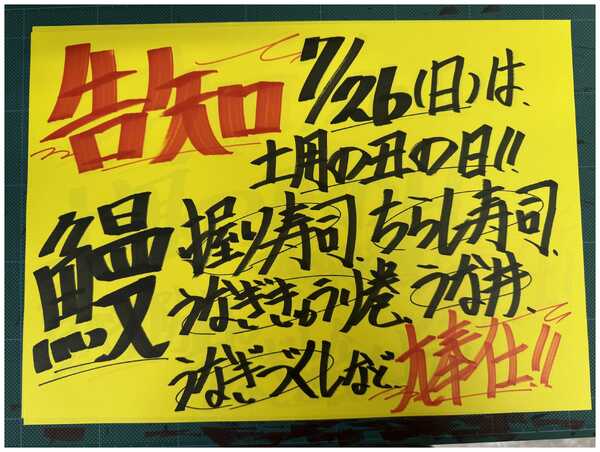 告知 7/26(日)は、
土用の丑の日!!
鰻 握り寿司、ちらし寿司、
うなぎきゅうり巻、うな丼、
うなぎづくしなど、大奉仕!!